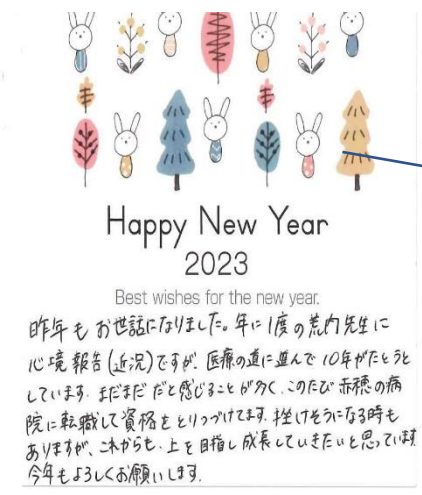 Happy New Year
2023
Best wishes for the new year.
昨年も お世話になりました。年に1度の荒内先生に
心境報告(近況)ですが、医療の道に進んで10年がたとうと
しています。まだまだ だと感じることが多く、このたび 赤穂の病
院に転職して資格をとりつづけてます。挫けそうになる時も
ありますが、これからも、上を目指し成長していきたいと思っています
今年もよろしくお願いします。